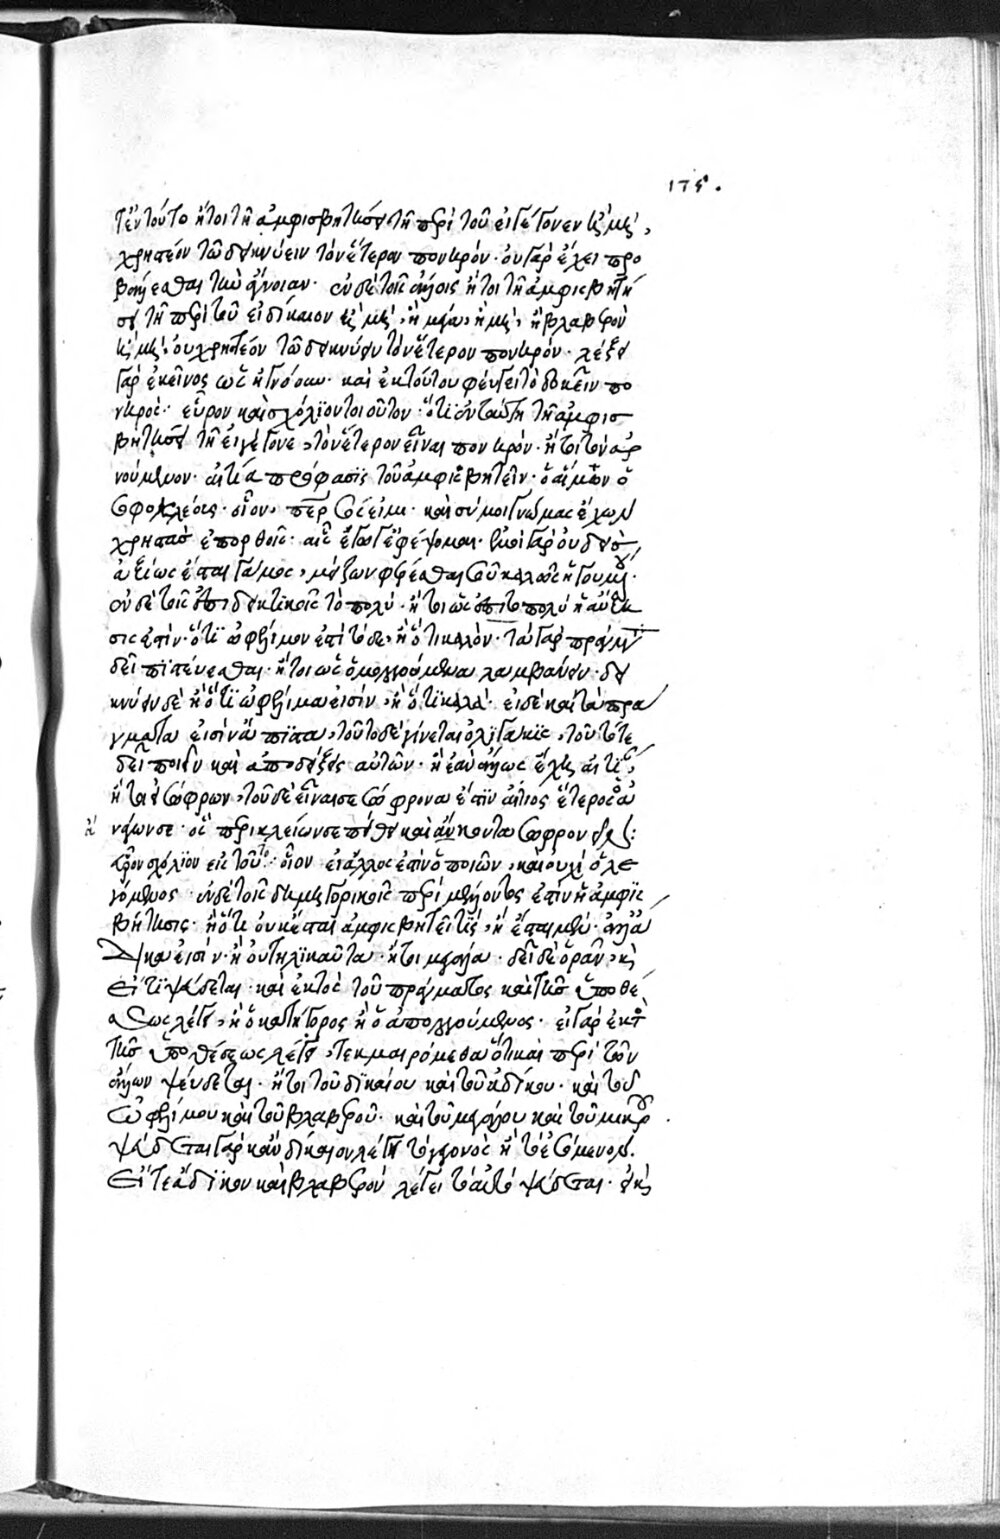 175.
τ ἐν τούτο ἤτοι τῆ ἀμφισβητήσει τῆ περὶ τοῦ εἰ γέγονεν ἢ μὴ,
χρηστέον τῶ δεικνύειν τὸν ἕτερον πονηρόν· οὐ γὰρ ἔχει προ
βαλέσθαι τὴν ἄγνοιαν· ἐν δὲ τοῖς ἄλλοις ἤτοι τῆ ἀμφισβητή
σει τῆ περὶ τοῦ εἰ δίκαιον ἢ μὴ, ἢ μέγα, ἢ μὴ, ἢ βλαβερὸν
ἢ μὴ, οὐ χρηστέον τῶ δεικνύειν τὸν ἕτερον πονηρόν· λέξει
γὰρ ἐκεῖνος ὡς ἠγνόουν· καὶ ἐκ τούτου φεύγει τὸ δοκεῖν πο
νηρός· εὗρον καὶ σχόλιον τοιοῦτον· ὅτι ἐν ταύτη τῆ ἀμφισ
βητήσει τῆ εἰ γέγονε, τὸν ἕτερον εἶναι πονηρὸν· ἤτοι τὸν ἀρ
νούμενον· αἰτία πρόφασις τοῦ ἀμφισβητεῖν· ὁ αἵμων ὁ
σοφοκλέους· οἷον, περ σός εἰμι· καὶ σύ μοι γνώμας ἔχων
χρηστὰς ἐπορθοῖς· αἷς ἔγωγ ἐφέψομαι· ἐμοὶ γὰρ οὐδεὶς
ἀξίως ἔσται γάμος, μείζων φέρεσθαι σοῦ καλῶς ἡγουμένου·
ἐν δὲ τοῖς ἐπιδεικτικοῖς τὸ πολὺ· ἤτοι ὡς ἐπὶ τὸ πολὺ ἡ αὔξη
σις ἐστὶν· ὅτι ὠφέλιμον ἐστὶ τόδε, ἢ ὅτι καλὸν· τὰ γὰρ πράγματα
δεῖ πιστεύεσθαι· ἤτοι ὡς ὁμολογούμενα λαμβάνειν· δει
κνύειν δὲ ἢ ὅτι ὠφέλιμα εἰσὶν, ἢ ὅτι καλά· εἰ δὲ καὶ τὰ πρά
γματα εἰσὶν ἄπιστα, τοῦτο δὲ γίνεται ὀλιγάκις, τοῦ τότε
δεῖ ποιεῖν καὶ ἀποδείξεις αὐτῶν· ἢ ἐὰν ἄλλως ἔχης αἰτίαν,
ἤτοι εἰ σώφρων, τοῦ δὲ εἶναι σε σώφρονα ἐστὶν αἴτιος ἕτερος ὁ ἀ
νάγων σε· ὡς περικλείων σε πείθει καὶ ἄκοντα σωφρονεῖν:
εὗρον σχόλιον εἰς τοῦτο· οἷον εἰ ἄλλος ἐστὶν ὁ ποιῶν, καὶ οὐχὶ ὁ λε
γόμενος· ἐν δὲ τοῖς δημηγορικοῖς περὶ μέλλοντος ἐστὶν ἡ ἀμφισ
βήτησις· ἢ ὅτι οὐκ ἔσται ἀμφισβητεῖ τίς, ἢ ἔσται μὲν· ἀλλὰ
ἄδικα εἰσὶν· ἢ οὐ τηλικαῦτα· ἤτοι μεγάλα· δεῖ δὲ ὁρᾶν, καὶ
εἴ τι ψεύδεται· καὶ ἐκτὸς τοῦ πράγματος καὶ τῆς ὑποθέ
σεως λέγει, ἢ ὁ κατήγορος ἢ ὁ ἀπολογούμενος· εἰ γὰρ ἐκτὸς
τῆς ὑποθέσεως λέγει, τεκμαιρόμεθα ὅτι καὶ περὶ τῶν
ἄλλων ψεύδεται· ἤτοι τοῦ δικαίου καὶ τοῦ ἀδίκου· καὶ τοῦ
ὠφελίμου καὶ τοῦ βλαβεροῦ· καὶ τοῦ μεγάλου καὶ τοῦ μικροῦ.
ψεύδεται γὰρ κἂν δίκαιον λέγη τὸ γεγονὸς ἢ τὸ ἐσόμενον.
Εἴτε ἄδικον καὶ βλαβερὸν λέγει τὸ αὐτὸ ψεύδεται·